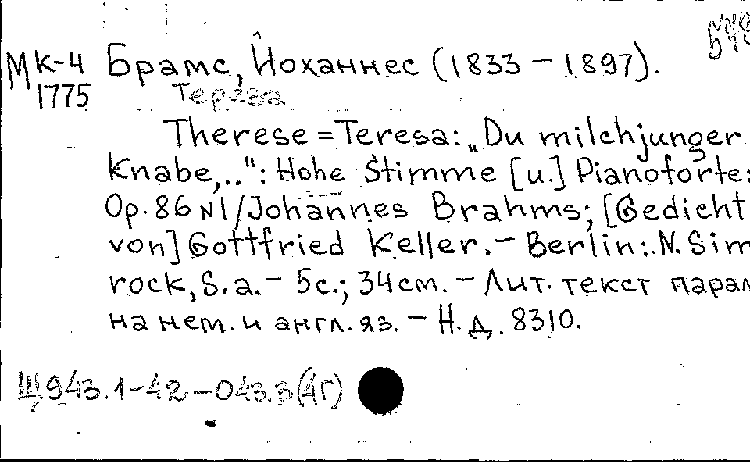 МК-4 Брамс, Йоханнес (1833 – 1897).
1775 Тереза
Therese = Teresa: „Du milchjunger
Knabe,..": Hohe Stimme [u.] Pianoforte:
Op. 86 N1/Johannes Brahms; [Gedicht
von] Gottfried Keller. – Berlin: N. Sim
rock, S. a. – 5 с.; 34 см. – Лит. текст парал
на нем. и англ. яз. – Н. д. 8310.
Щ943.1-42-043.3(4Г)